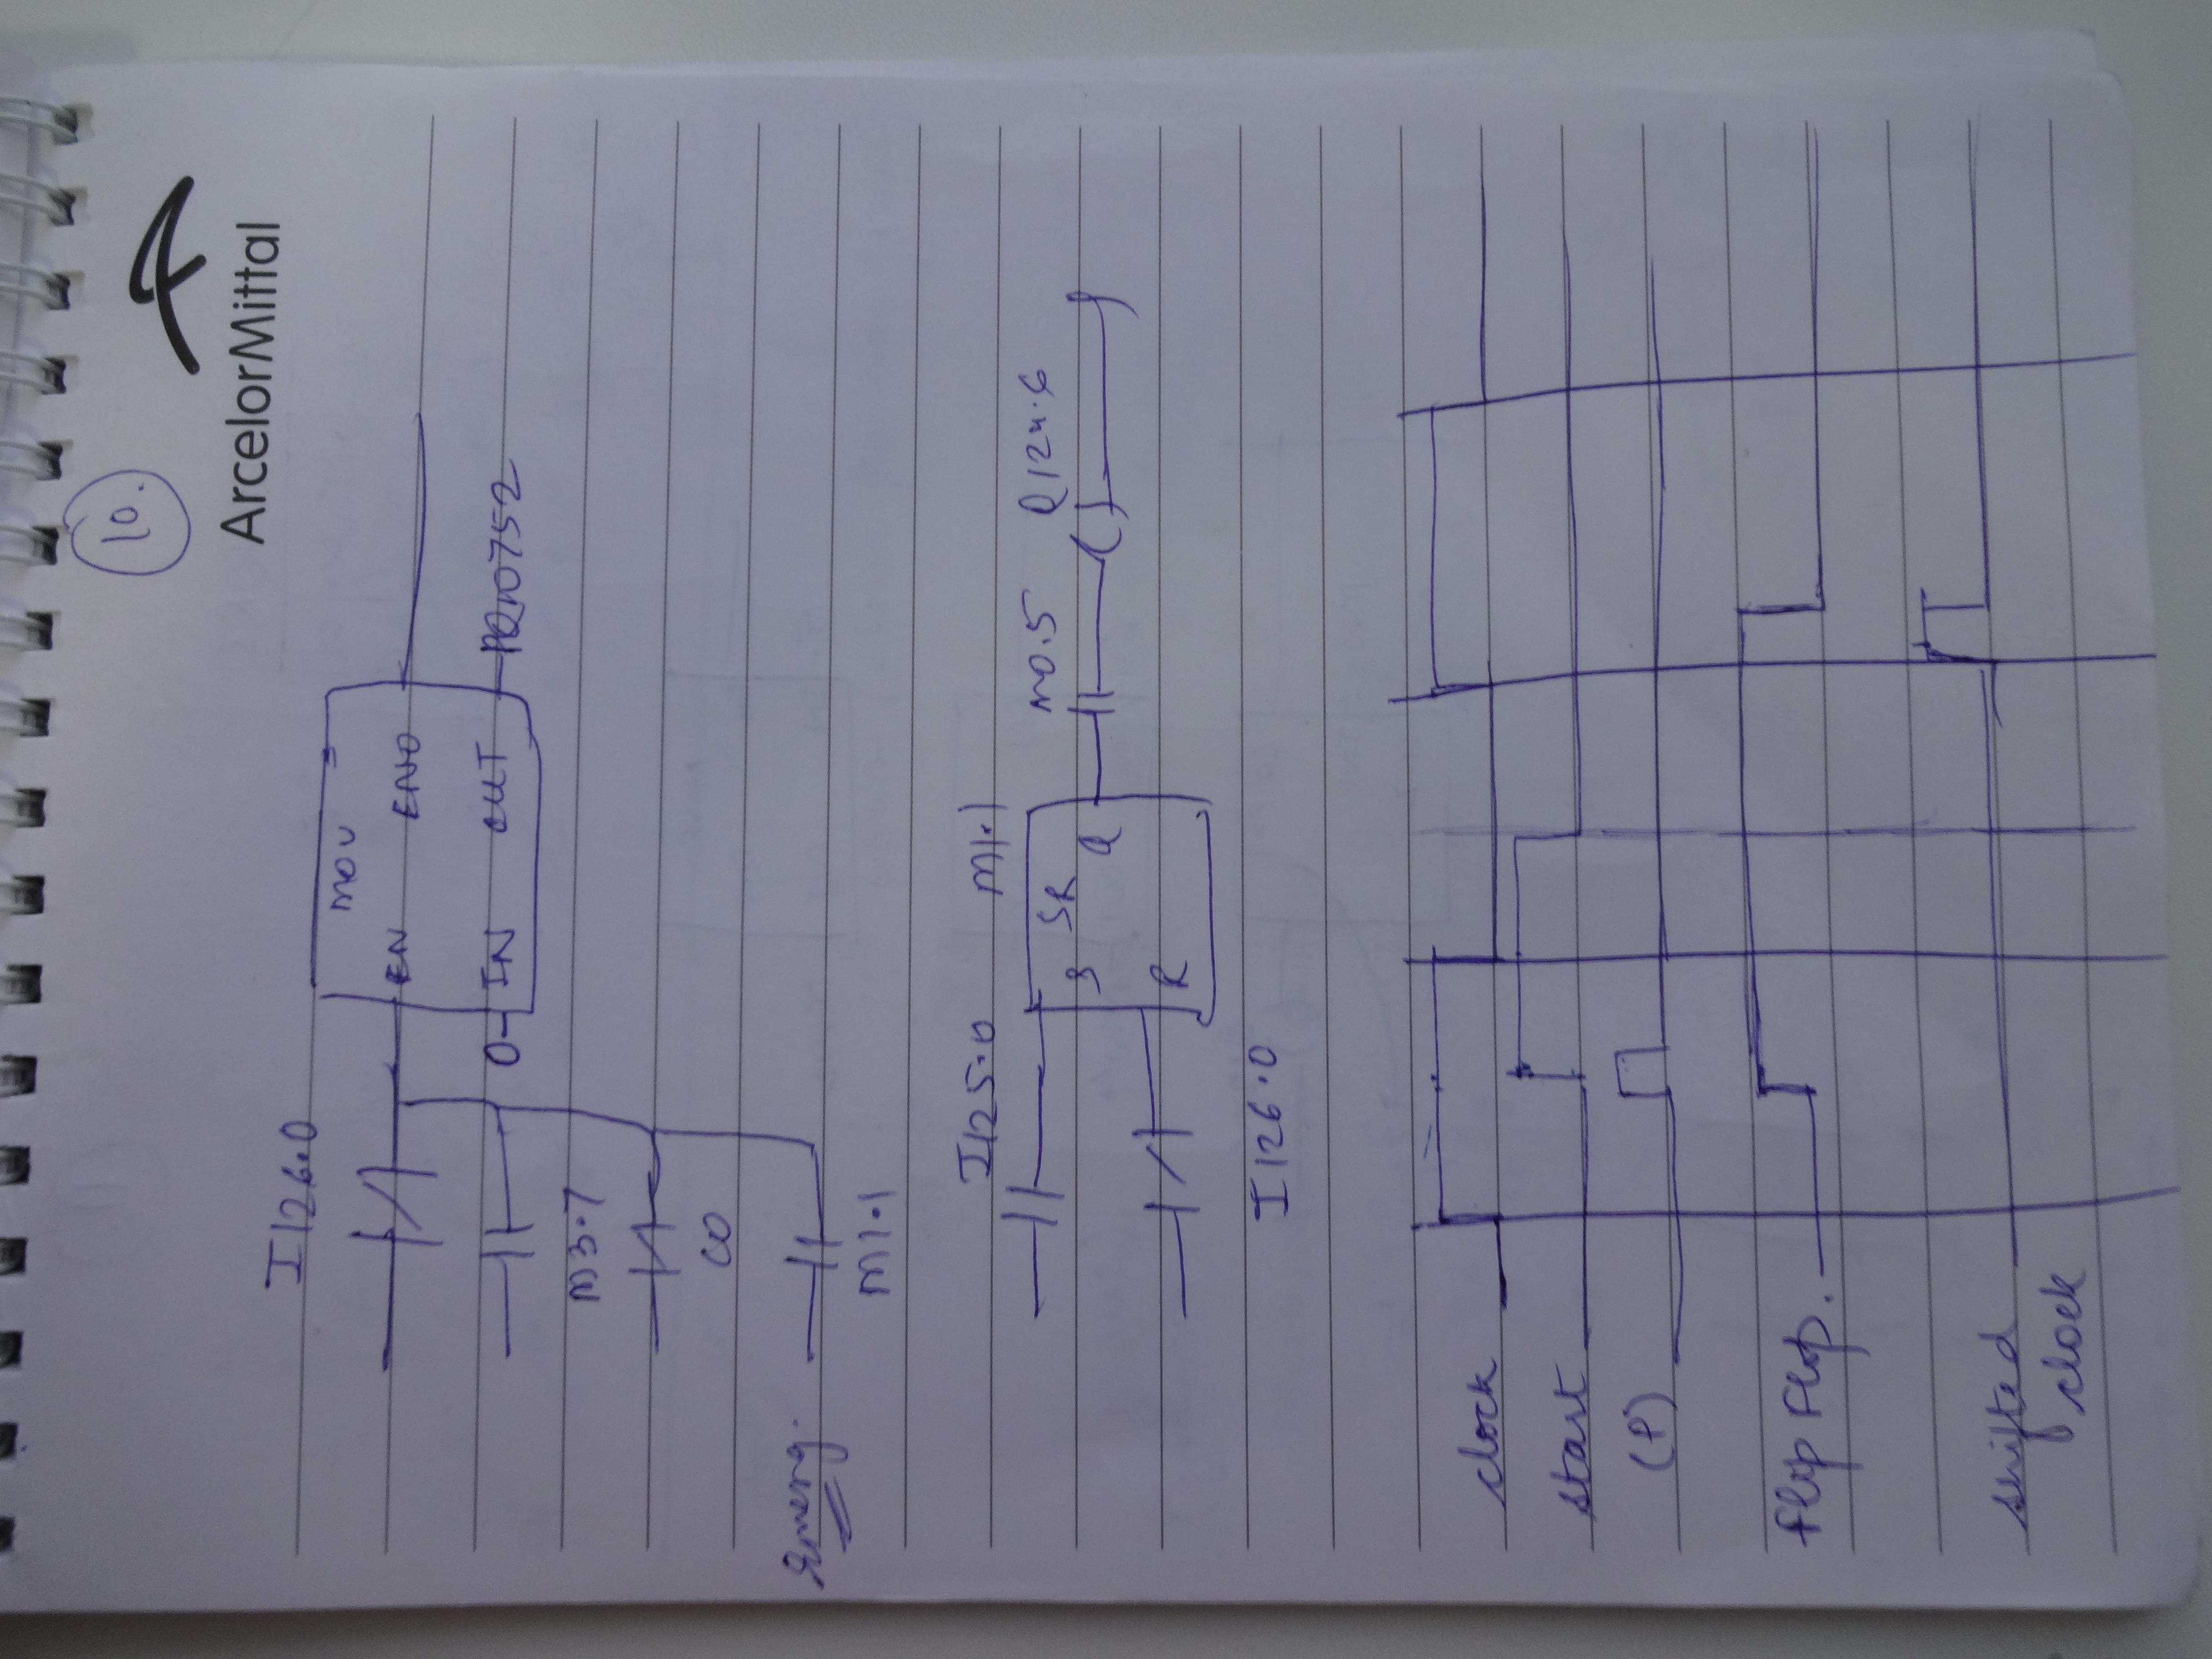 10.
ArcelorMittal
I126.0
MOV
EN ENO
0 IN OUT PQW752
M3.7
C0
Emerg.
M1.1
I125.0 M1.1
S SR M0.5 Q124.6
Q
R
I126.0
clock
start
(P)
Flip Flop.
shifted
clock